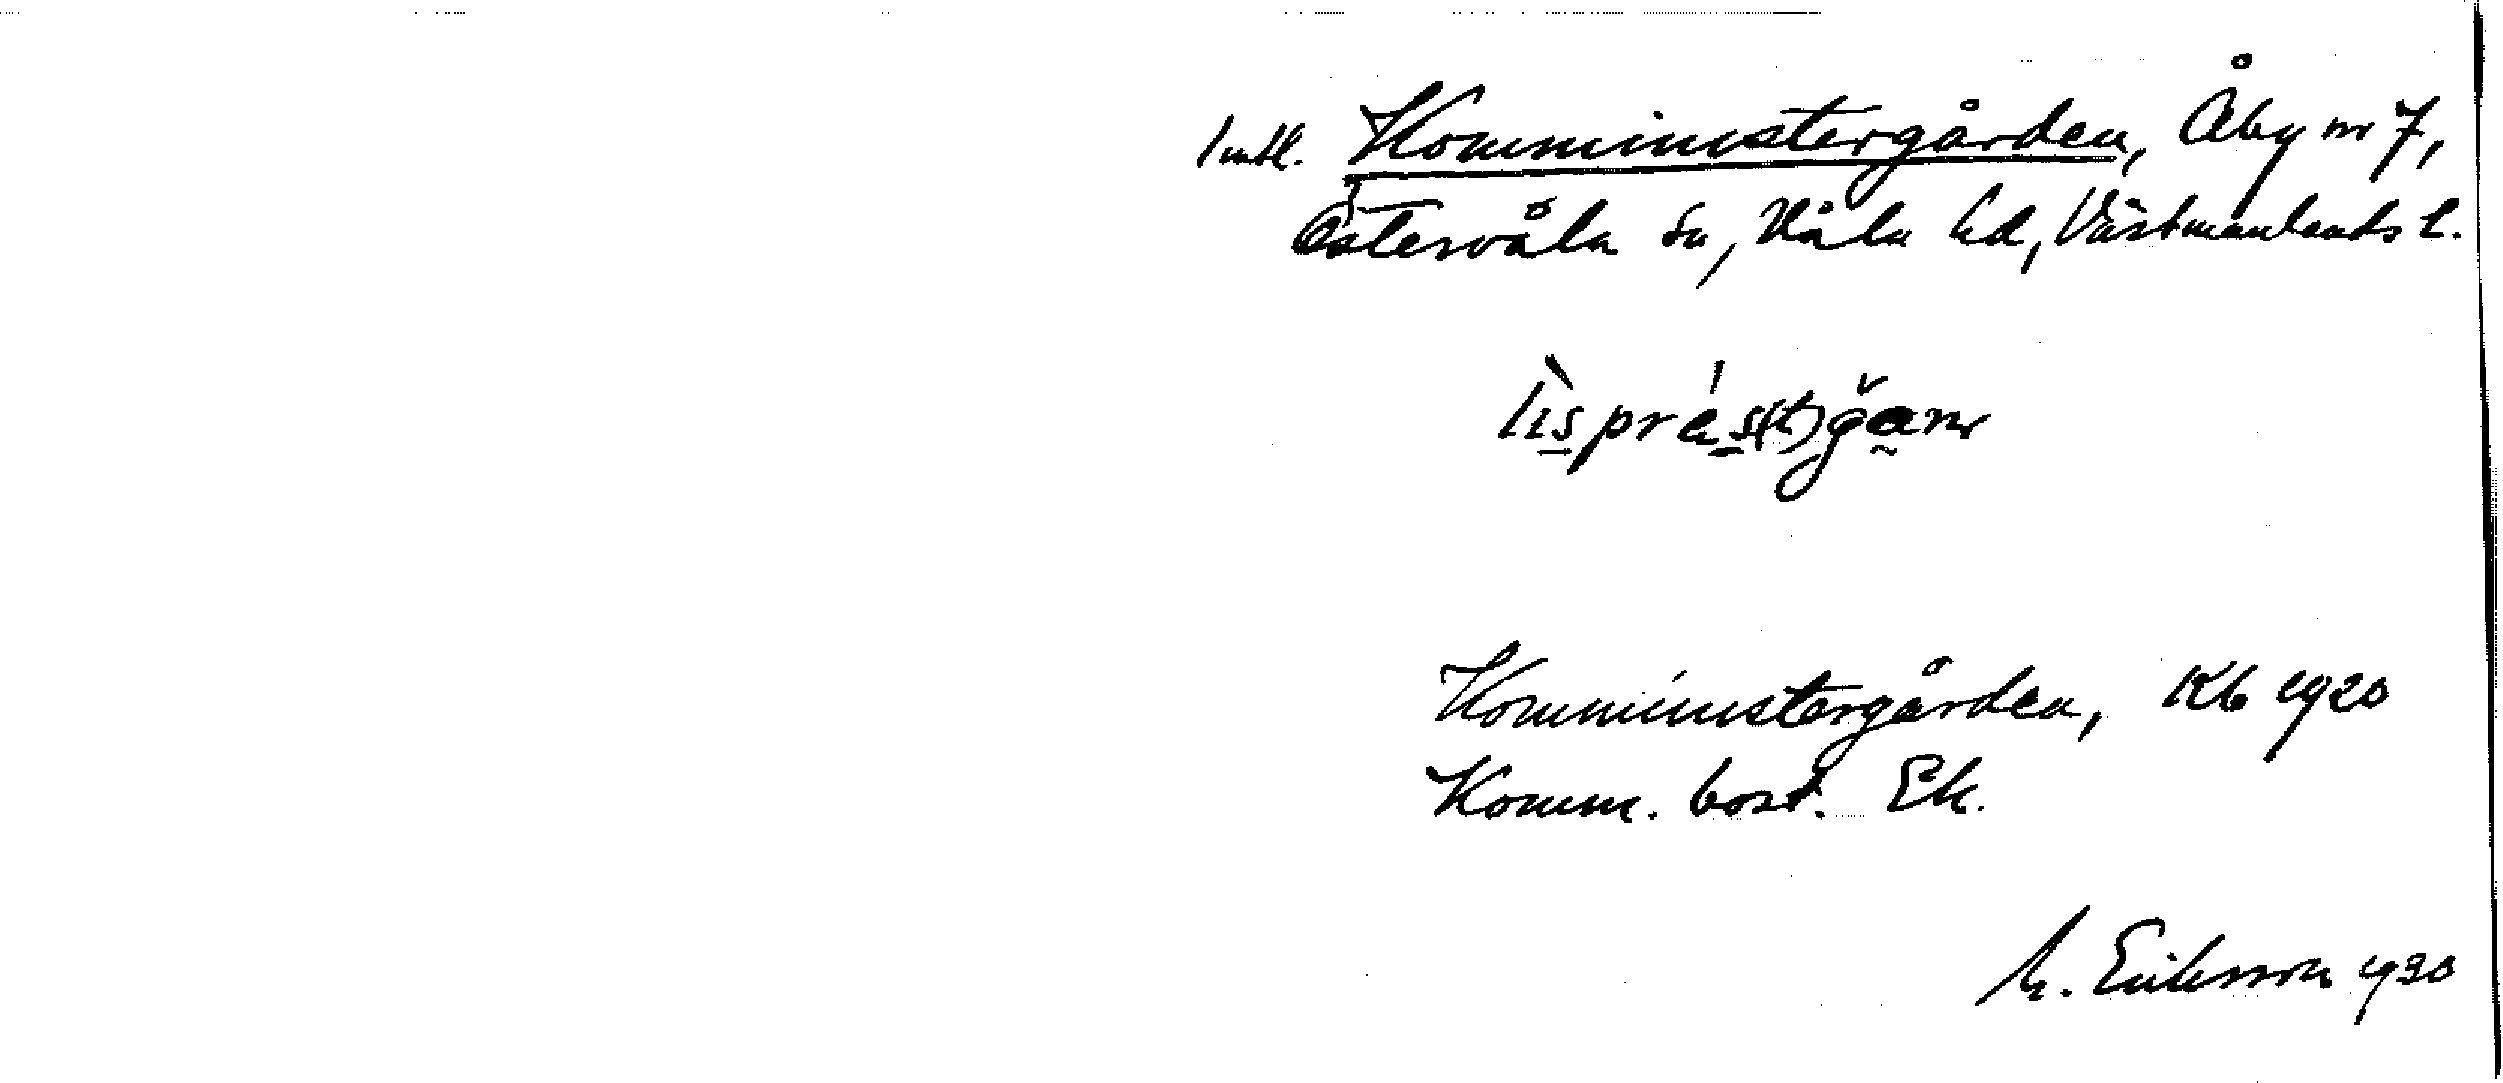 Komministergården, Åby nr 7,
Östervåla sn, Våla hd, Västmanlands l.
Komministergården, Kb 1920
Komm. bost. Ek.
M. Eriksson 1930